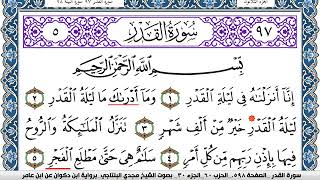 ٩٧ سُورَةُ القَدْرِ ٥
بِسْمِ اللَّهِ الرَّحْمَٰنِ الرَّحِيمِ
إِنَّا أَنزَلْنَاهُ فِي لَيْلَةِ الْقَدْرِ ١ وَمَا أَدْرَىٰكَ مَا لَيْلَةُ الْقَدْرِ ٢
لَيْلَةُ الْقَدْرِ خَيْرٌ مِّنْ أَلْفِ شَهْرٍ ٣ تَنَزَّلُ الْمَلَٰئِكَةُ وَالرُّوحُ
فِيهَا بِإِذْنِ رَبِّهِم مِّن كُلِّ أَمْرٍ ٤ سَلَٰمٌ هِيَ حَتَّىٰ مَطْلَعِ الْفَجْرِ ٥
سورة القدر . الصفحة ٥٩٨. الحزب ٦٠ . الجزء ٣٠ . بصوت الشيخ مجدي البنتاجي. برواية ابن ذكوان عن ابن عامر